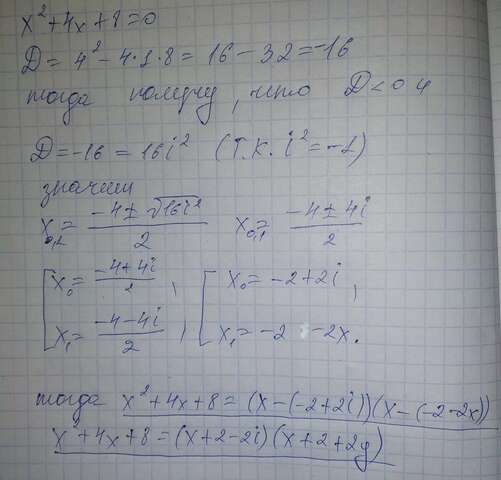 x² + 4x + 8 = 0
D = 4² - 4·1·8 = 16 - 32 = -16
тогда получу, что D < 0 и
D = -16 = 16i² (т.к. i² = -1)
значит
x₀,₁ = (-4 ± √16i²)/2 x₀,₁ = (-4 ± 4i)/2
[ x₀ = (-4 + 4i)/2, [ x₀ = -2 + 2i,
x₁ = (-4 - 4i)/2, x₁ = -2 - 2x.
тогда x² + 4x + 8 = (x - (-2 + 2i))(x - (-2 - 2x))
x² + 4x + 8 = (x + 2 - 2i)(x + 2 + 2y)